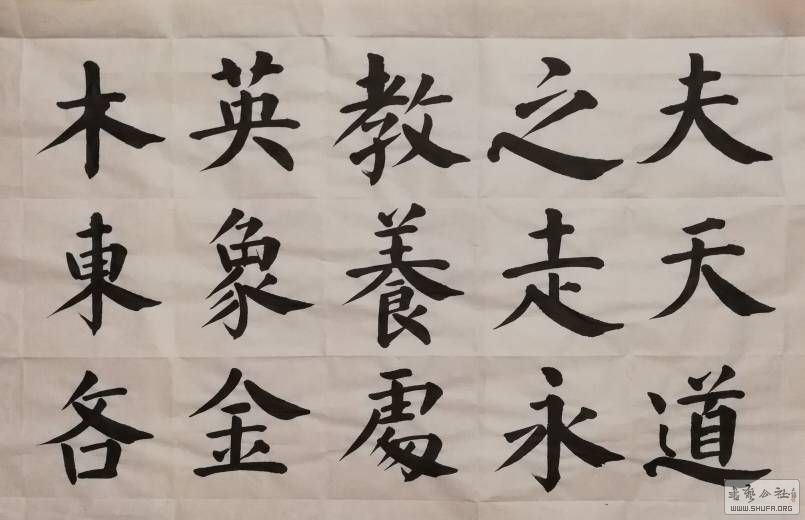 夫天道
之走永
教養處
英象金
木東各
書艺公社
WWW.SHUFA.ORG